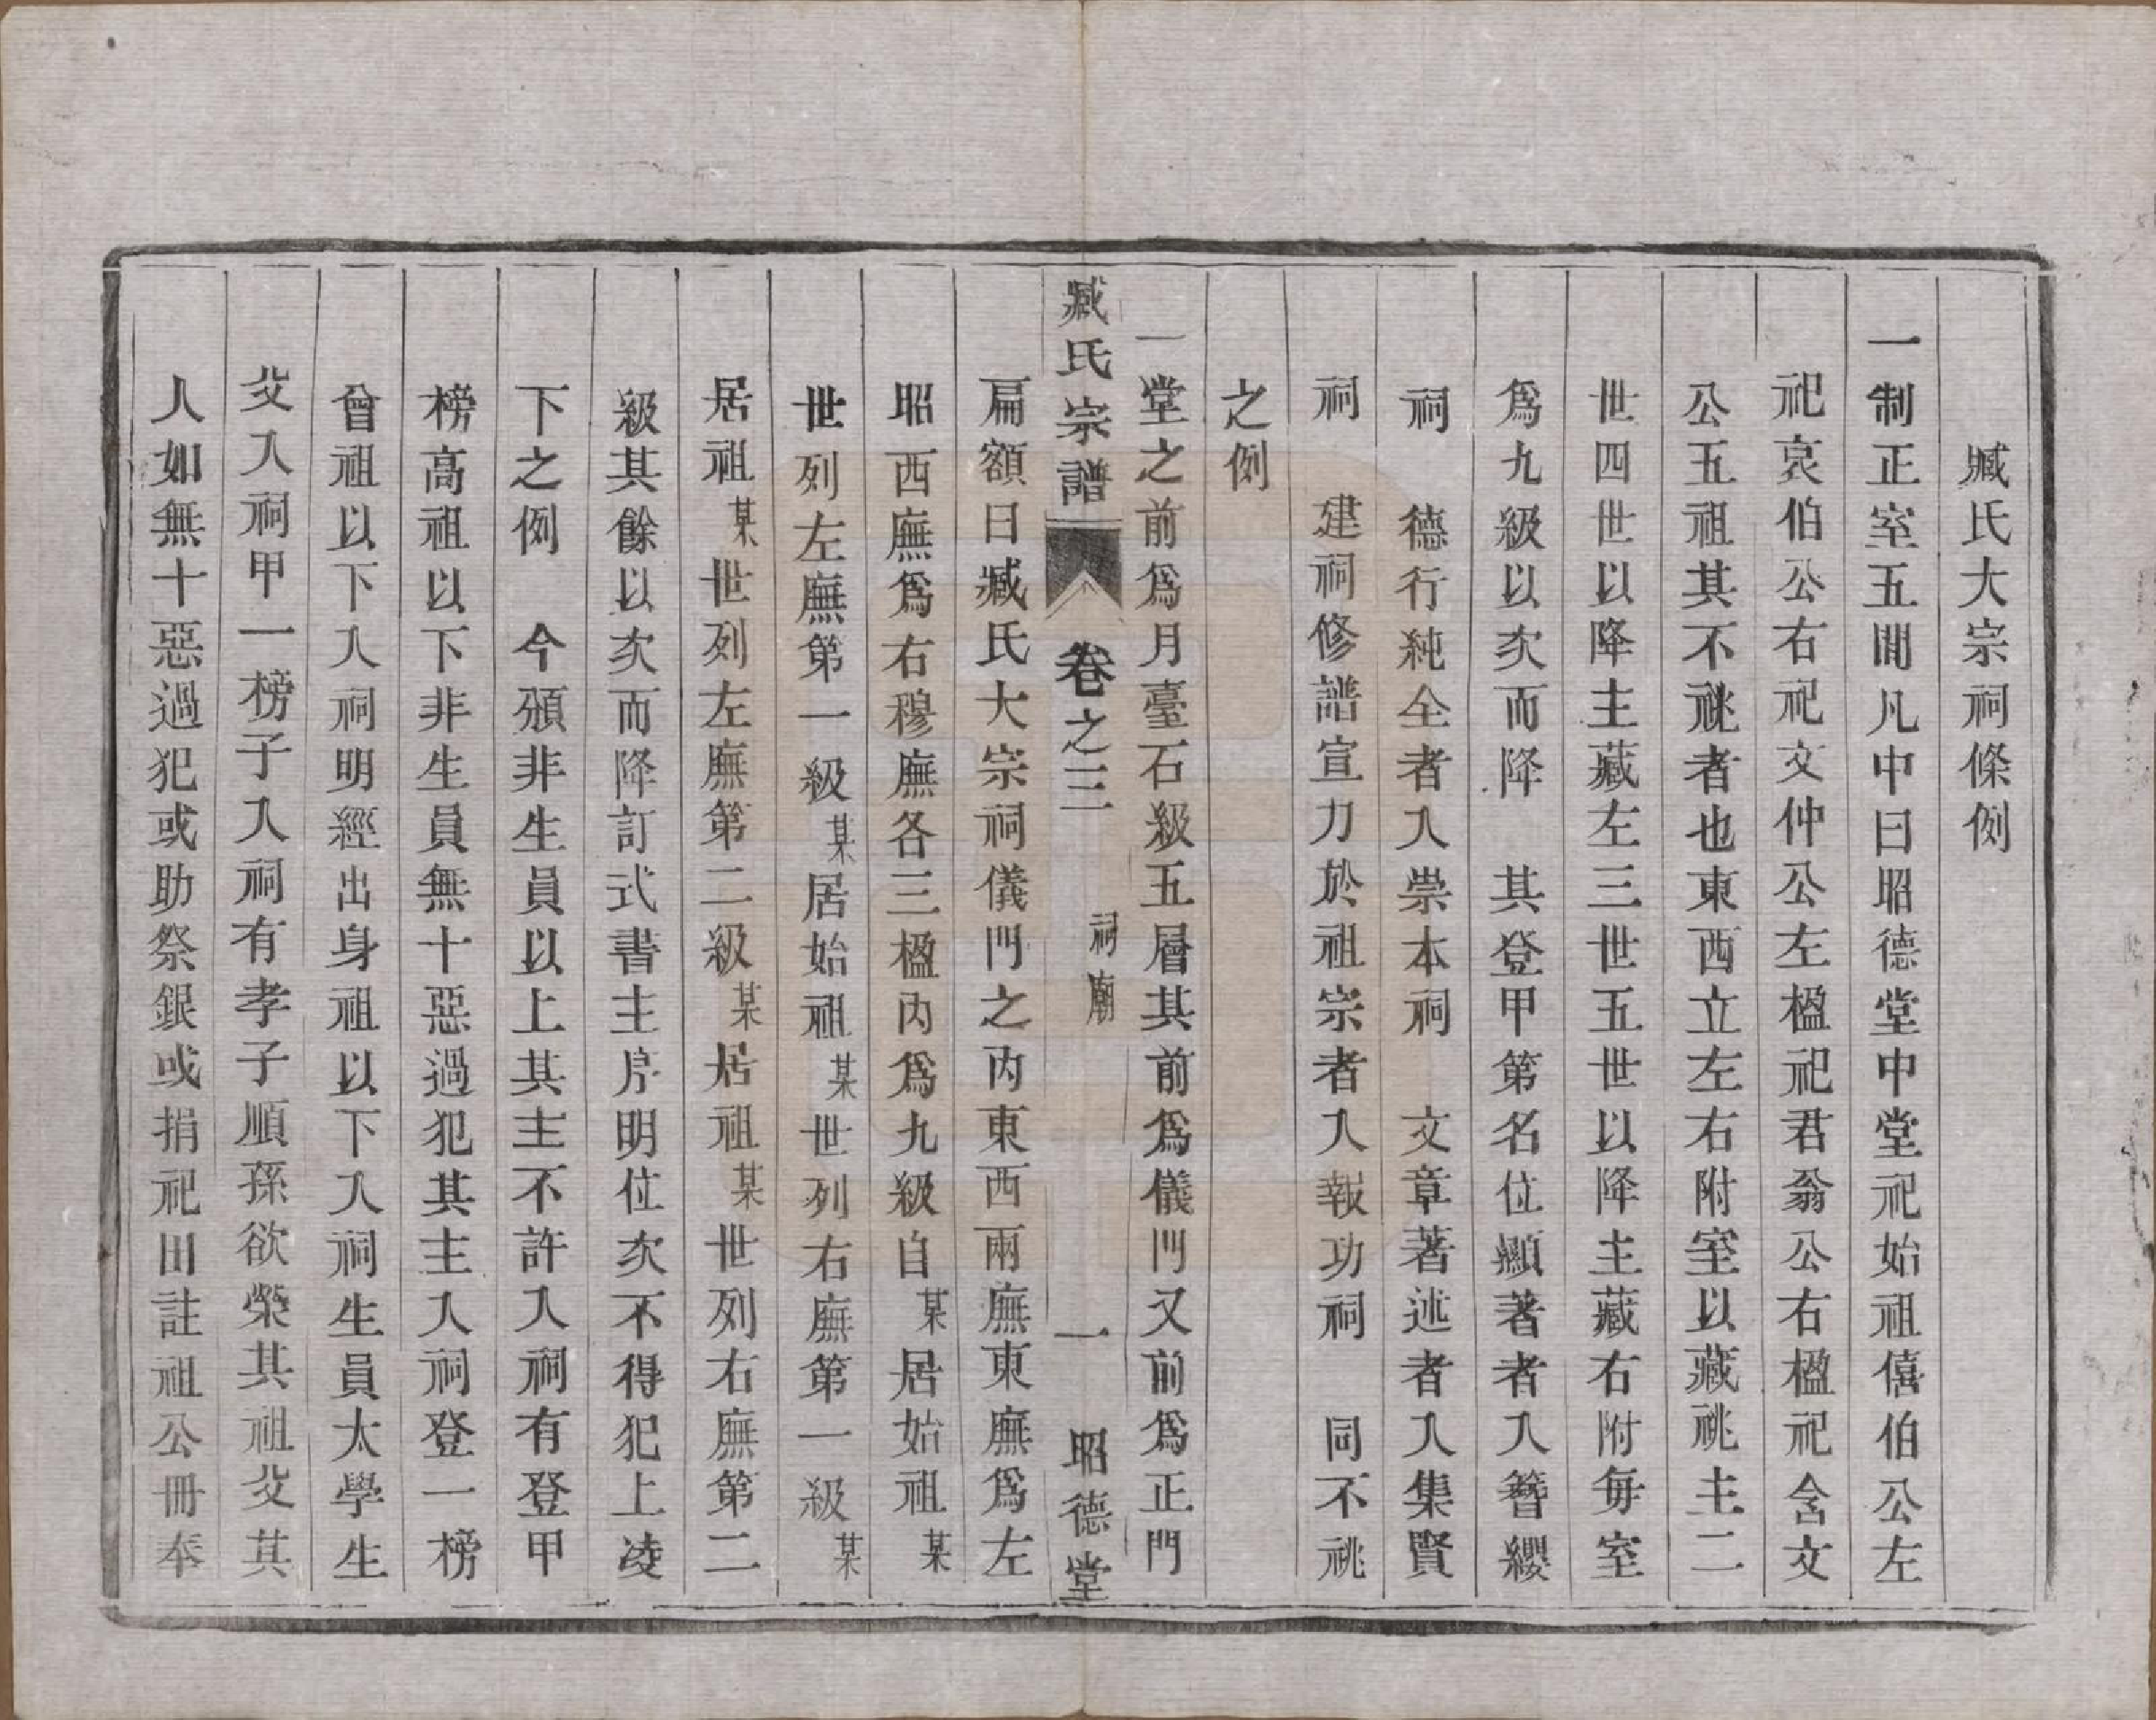 臧氏大宗祠條例
一制正室五間凡中曰昭德堂中堂祀始祖僖伯公左
祀哀伯公右祀文仲公左楹祀君翁公右楹祀含文
公五祖其不祧者也東西立左右附室以藏祧主二
世四世以降主藏左三世五世以降主藏右附每室
爲九級以次而降　其登甲第名位顯著者入簪纓
祠　德行純全者入崇本祠　文章著述者入集賢
祠　建祠修譜宣力於祖宗者入報功祠　同不祧
之例
一堂之前爲月臺石級五層其前爲儀門又前爲正門
臧氏宗譜　卷之三　祠廟　一　昭德堂
扁額曰臧氏大宗祠儀門之內東西兩廡東廡爲左
昭西廡爲右穆廡各三楹內爲九級自某居始祖某
世列左廡第一級某居始祖某世列右廡第一級某
居祖某世列左廡第二級某居祖某世列右廡第二
級其餘以次而降訂式書主序明位次不得犯上凌
下之例　今頒非生員以上其主不許入祠有登甲
榜高祖以下非生員無十惡過犯其主入祠登一榜
曾祖以下入祠明經出身祖以下入祠生員太學生
父入祠甲一榜子入祠有孝子順孫欲榮其祖父其
人如無十惡過犯或助祭銀或捐祀田註祖公冊奉